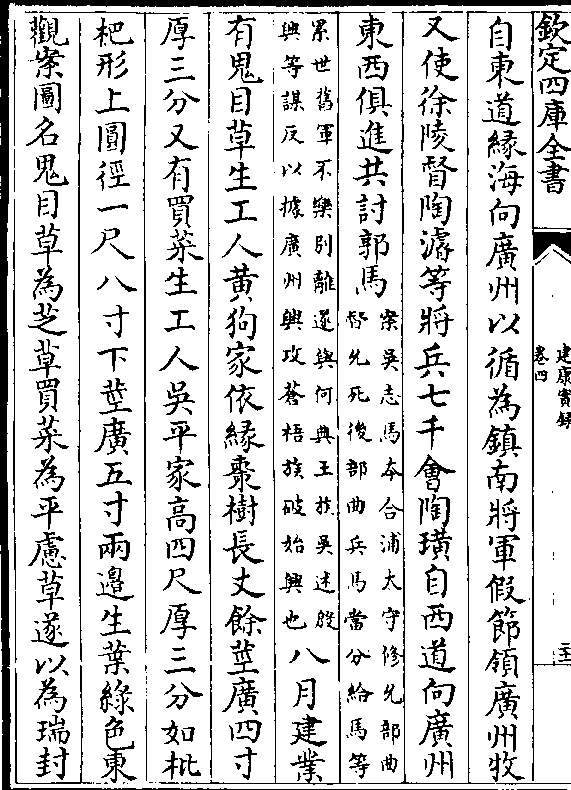 欽定四庫全書
建康實錄
卷四
自東道緣海向廣州以循為鎮南將軍假節領廣州牧
又使徐陵督陶濬等將兵七千會陶璜自西道向廣州
東西俱進共討郭馬
案吳志馬本合浦太守修允部曲
督允死後部曲兵馬當分給馬等
累世舊軍不樂別離遂與何典王族吳述殷
興等謀反以據廣州興攻蒼梧族破始興也
八月建業
有鬼目草生工人黃狗家依緣棗樹長丈餘莖廣四寸
厚三分又有買菜生工人吳平家高四尺厚三分如枇
杷形上圓徑一尺八寸下莖廣五寸兩邊生葉綠色東
觀案圖名鬼目草為芝草買菜為平慮草遂以為瑞封